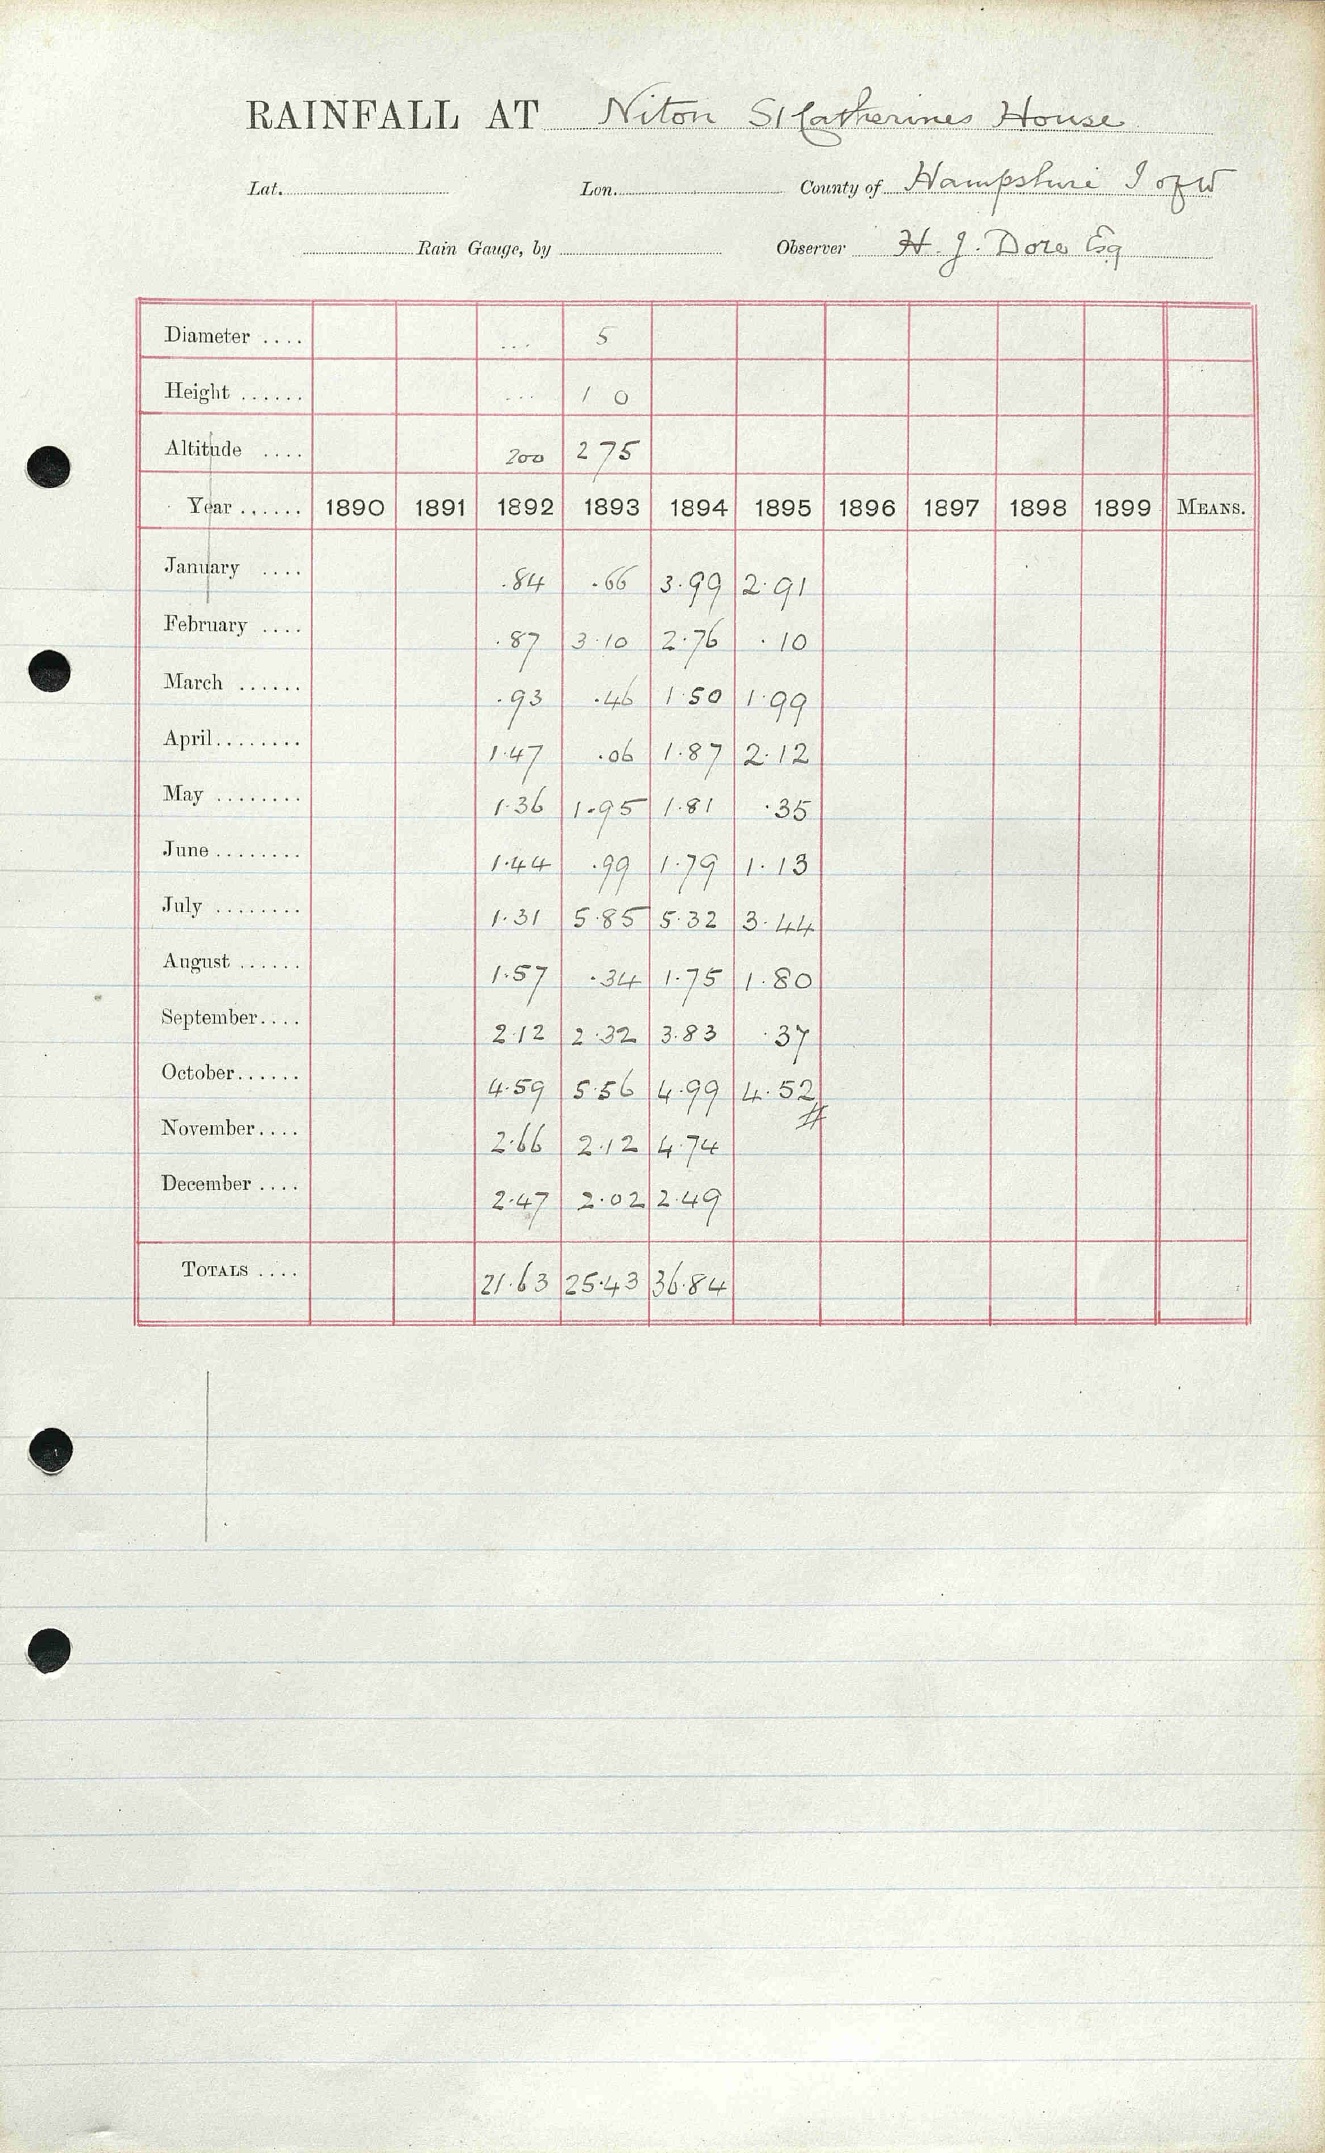 RAINFALL AT Niton St Catherines House
Lat. Lon. County of Hampshire I of W
Rain Gauge, by Observer H. J. Dore Esq
Diameter .... ... 5
Height ...... ... 1 0
Altitude .... 200 275
Year ...... 1890 1891 1892 1893 1894 1895 1896 1897 1898 1899 MEANS.
January .... .84 .66 3.99 2.91
February .... .87 3.10 2.76 .10
March ...... .93 .46 1.50 1.99
April........ 1.47 .06 1.87 2.12
May ........ 1.36 1.95 1.81 .35
June ........ 1.44 .99 1.79 1.13
July ........ 1.31 5.85 5.32 3.44
August ...... 1.57 .34 1.75 1.80
September.... 2.12 2.32 3.83 .37
October...... 4.59 5.56 4.99 4.52
#
November.... 2.66 2.12 4.74
December .... 2.47 2.02 2.49
TOTALS .... 21.63 25.43 36.84